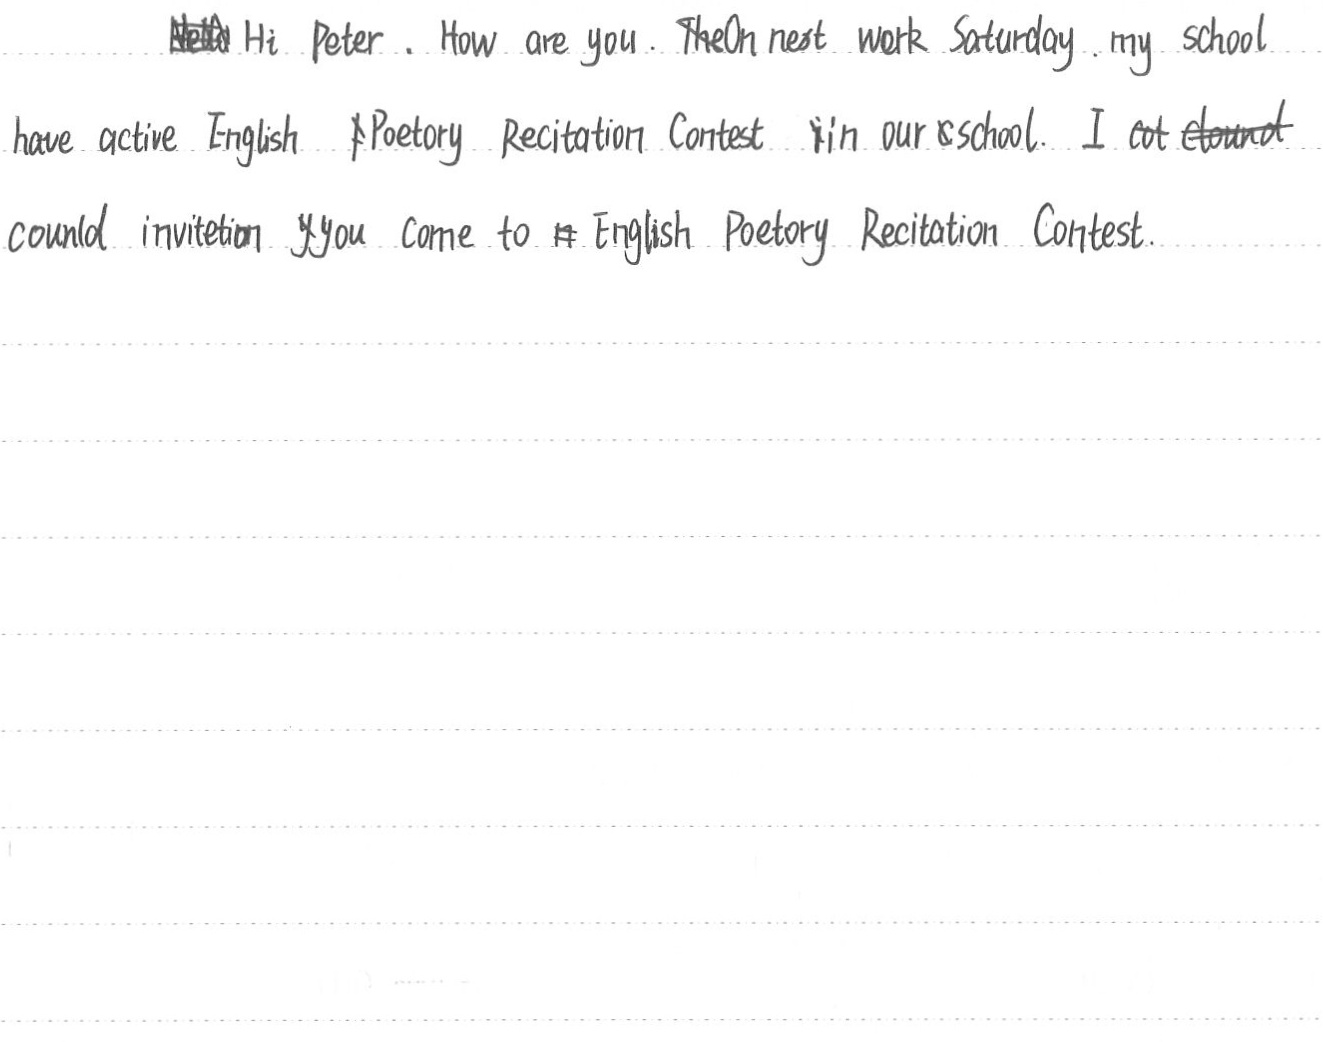 Hi Peter. How are you. The On nest work Saturday. my school
have active English Poetory Recitation Contest in our school. I cot
counld invitetion you come to English Poetory Recitation Contest.